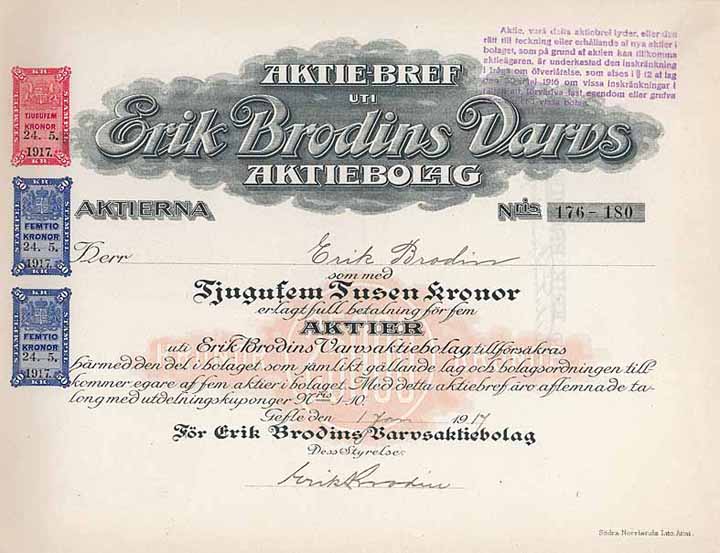 Aktie, vare sig detta aktiebref lyder, eller den
rätt till teckning eller erhållande af nya aktier i
bolaget, som på grund af aktien kan tillkomma
aktieägaren, är underkastad den inskränkning
i fråga om öfverlåtelse, som afses i § 12 af lag
den 1916 om vissa inskränkningar i
fast egendom eller grufva
vissa bolag.
AKTIEBREF
UTI
Erik Brodins Varvs
AKTIEBOLAG
KR
25 25
STÄMPEL
TJUGUFEM
KRONOR
24. 5.
1917.
25 KR 25
50 KR 50
STÄMPEL
FEMTIO
KRONOR
24. 5.
1917.
50 KR 50
50 KR 50
STÄMPEL
FEMTIO
KRONOR
24. 5.
1917.
50 KR 50
AKTIERNA
Nris 176-180
Herr Erik Brodin
som med
Tjugufem Tusen Kronor
erlagt full betalning för fem
AKTIER
uti Erik Brodins Varvsaktiebolag tillförsäkras
härmed den del i bolaget som jämlikt gällande lag och bolagsordningen till-
kommer egare af fem aktier i bolaget. Med detta aktiebref äro aflemnade ta-
long med utdelningskuponger Nris 1-10.
Gefle den 1 Jan 1917
För Erik Brodins Varvsaktiebolag
Dess Styrelse:
Erik Brodin
Södra Norrlands Lito. Anst.